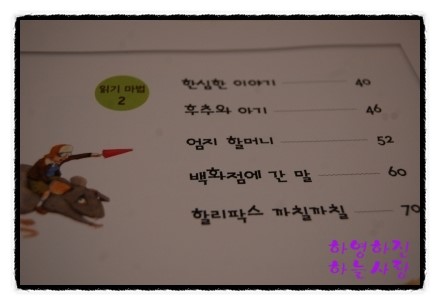 읽기 마법
2
한심한 이야기 40
후추와 아기 46
엄지 할머니 52
백화점에 간 말 60
할리팍스 까칠까칠 70
하영하진
하늘사랑